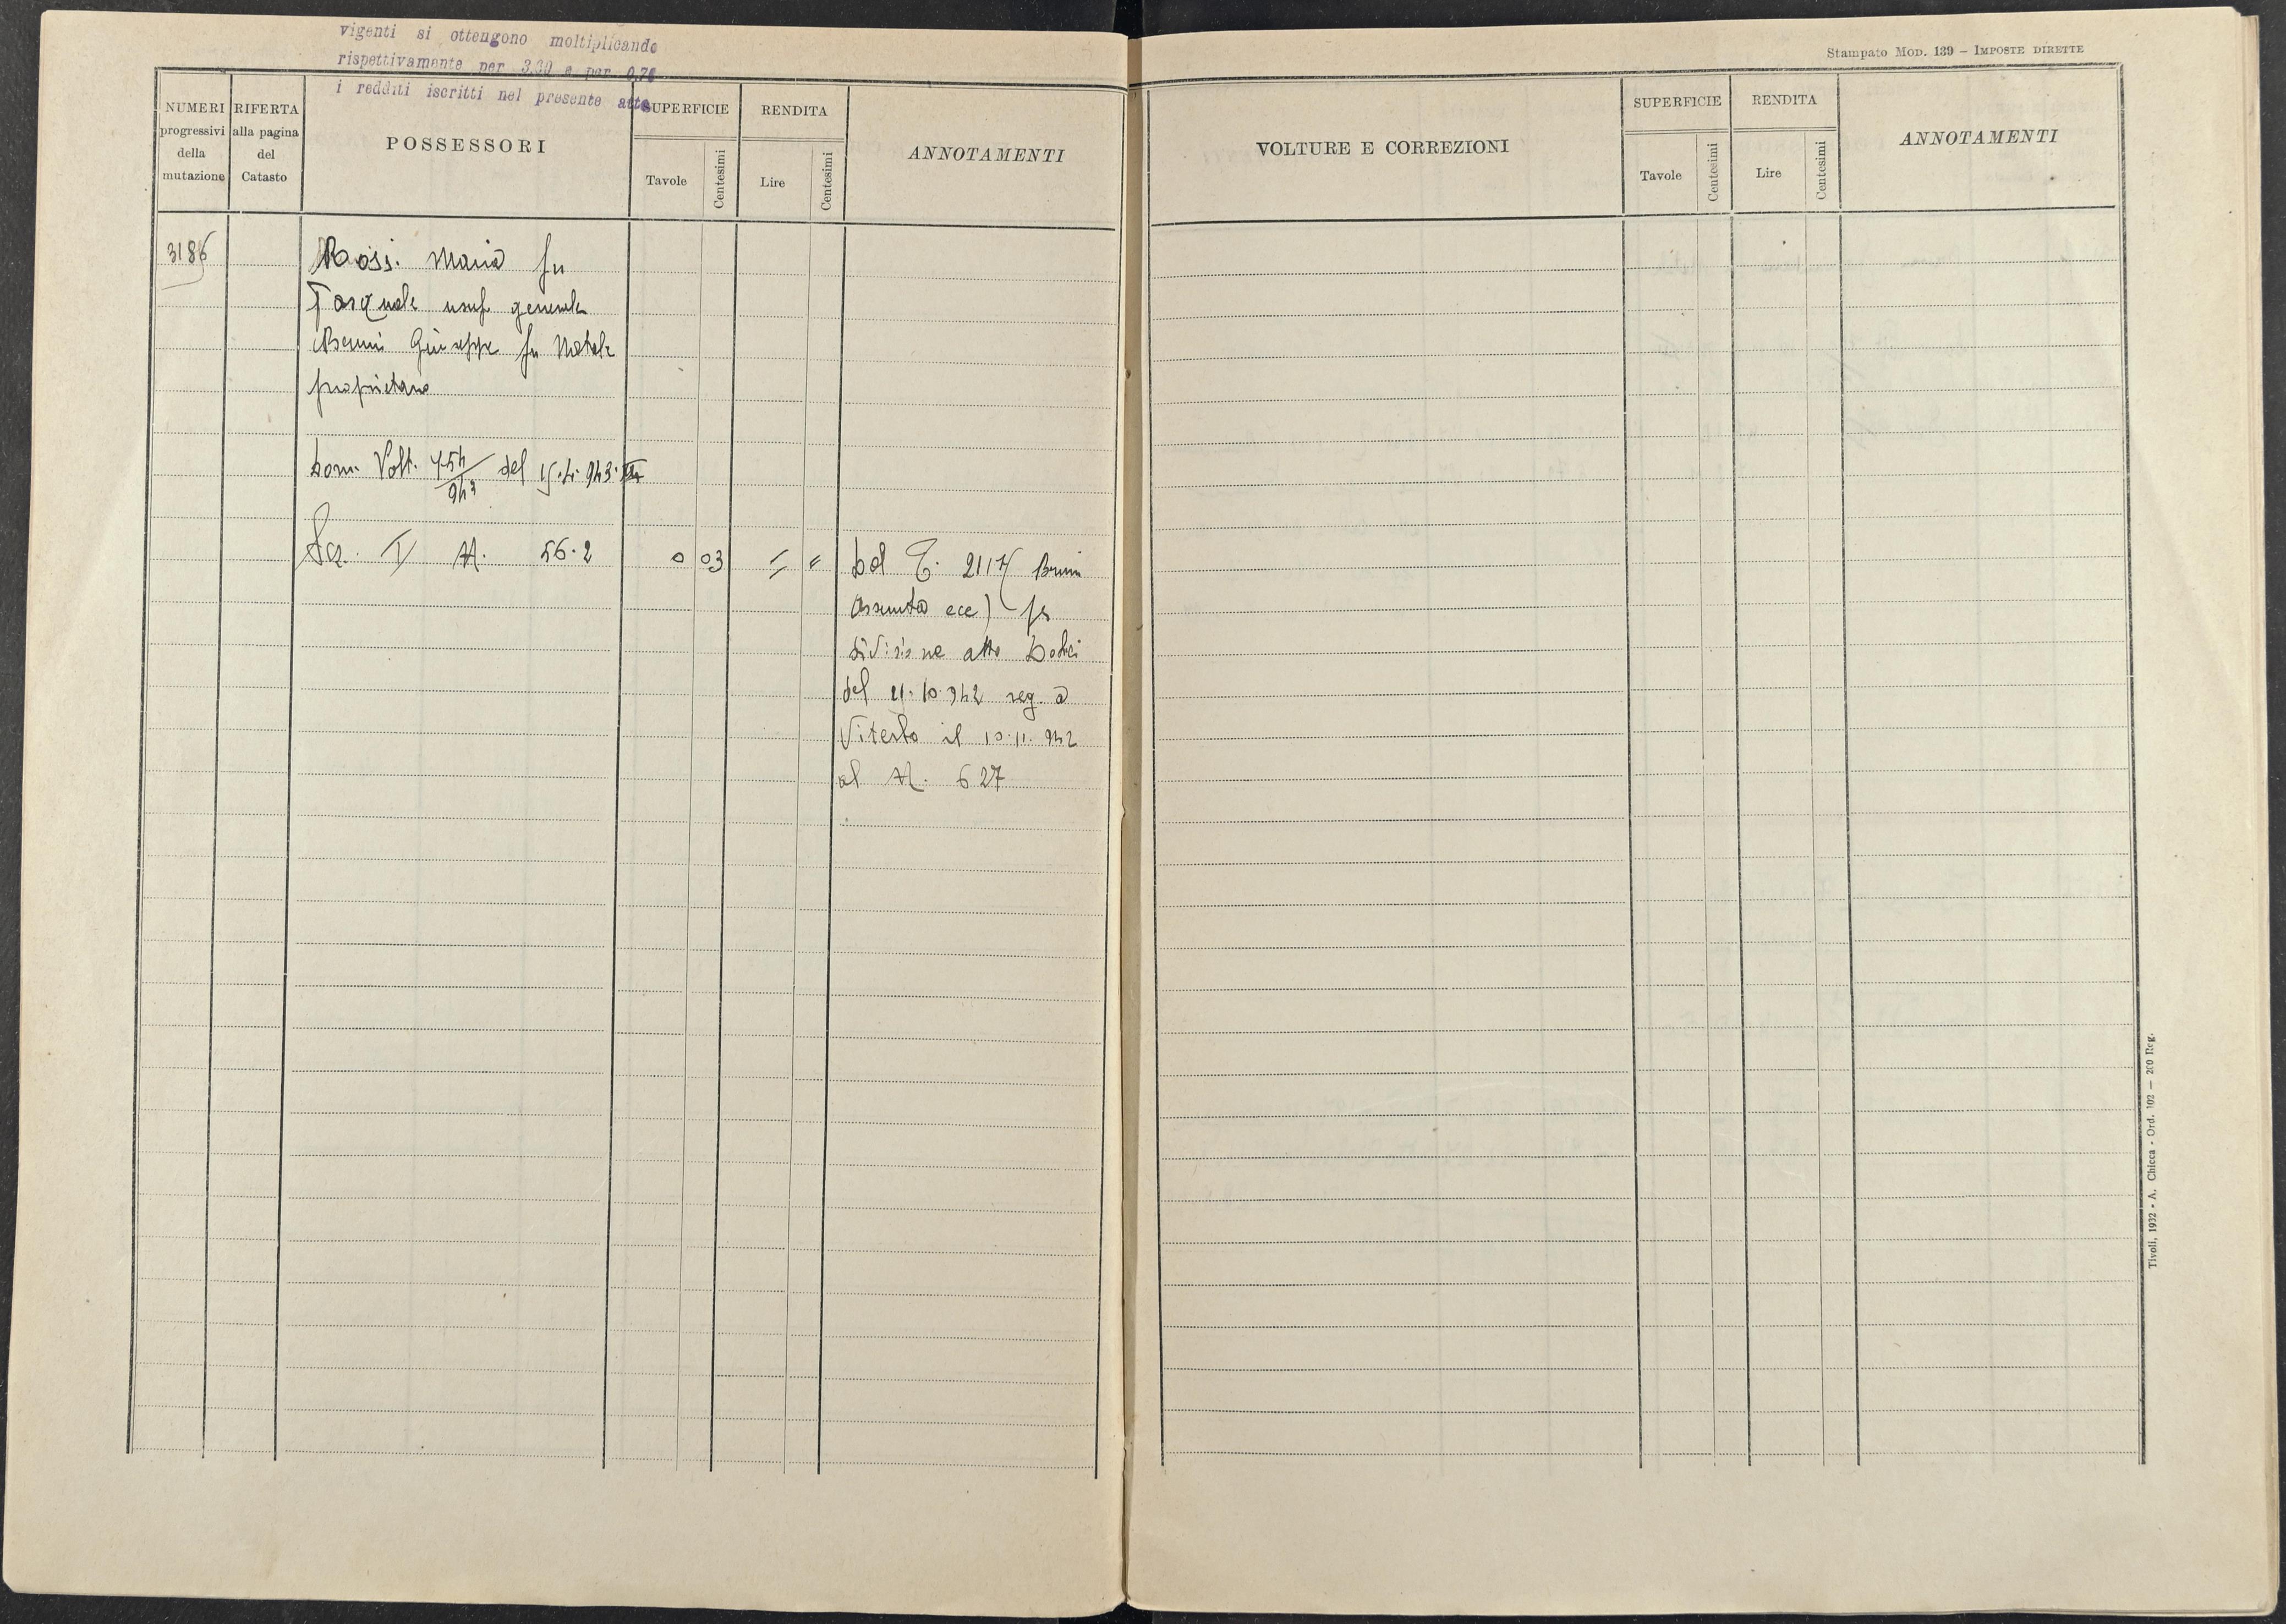 vigenti si ottengono moltiplicando
rispettivamente per 3,00 e per 0,70
i redditi iscritti nel presente atto
NUMERI progressivi della mutazione
RIFERTA alla pagina del Catasto
POSSESSORI
SUPERFICIE
Tavole
Centesimi
RENDITA
Lire
Centesimi
ANNOTAMENTI
3186
Rossi Maria fu
Pasquale usuf generale
Bruni Giuseppe fu Natale
proprietario
Dom. Volt. 754/943 del
Sez. I N. 56.2
0 03 = "
Dal C. 2117 (Bruni
Assunta ecc) per
divisione atto
del 21.10.942 reg. a
Viterbo il 10.11.942
al N. 627
Stampato Mod. 139 – Imposte dirette
VOLTURE E CORREZIONI
SUPERFICIE
Tavole
Centesimi
RENDITA
Lire
Centesimi
ANNOTAMENTI
Tivoli, 1932 - A. Chicca - Ord. 102 — 200 Reg.